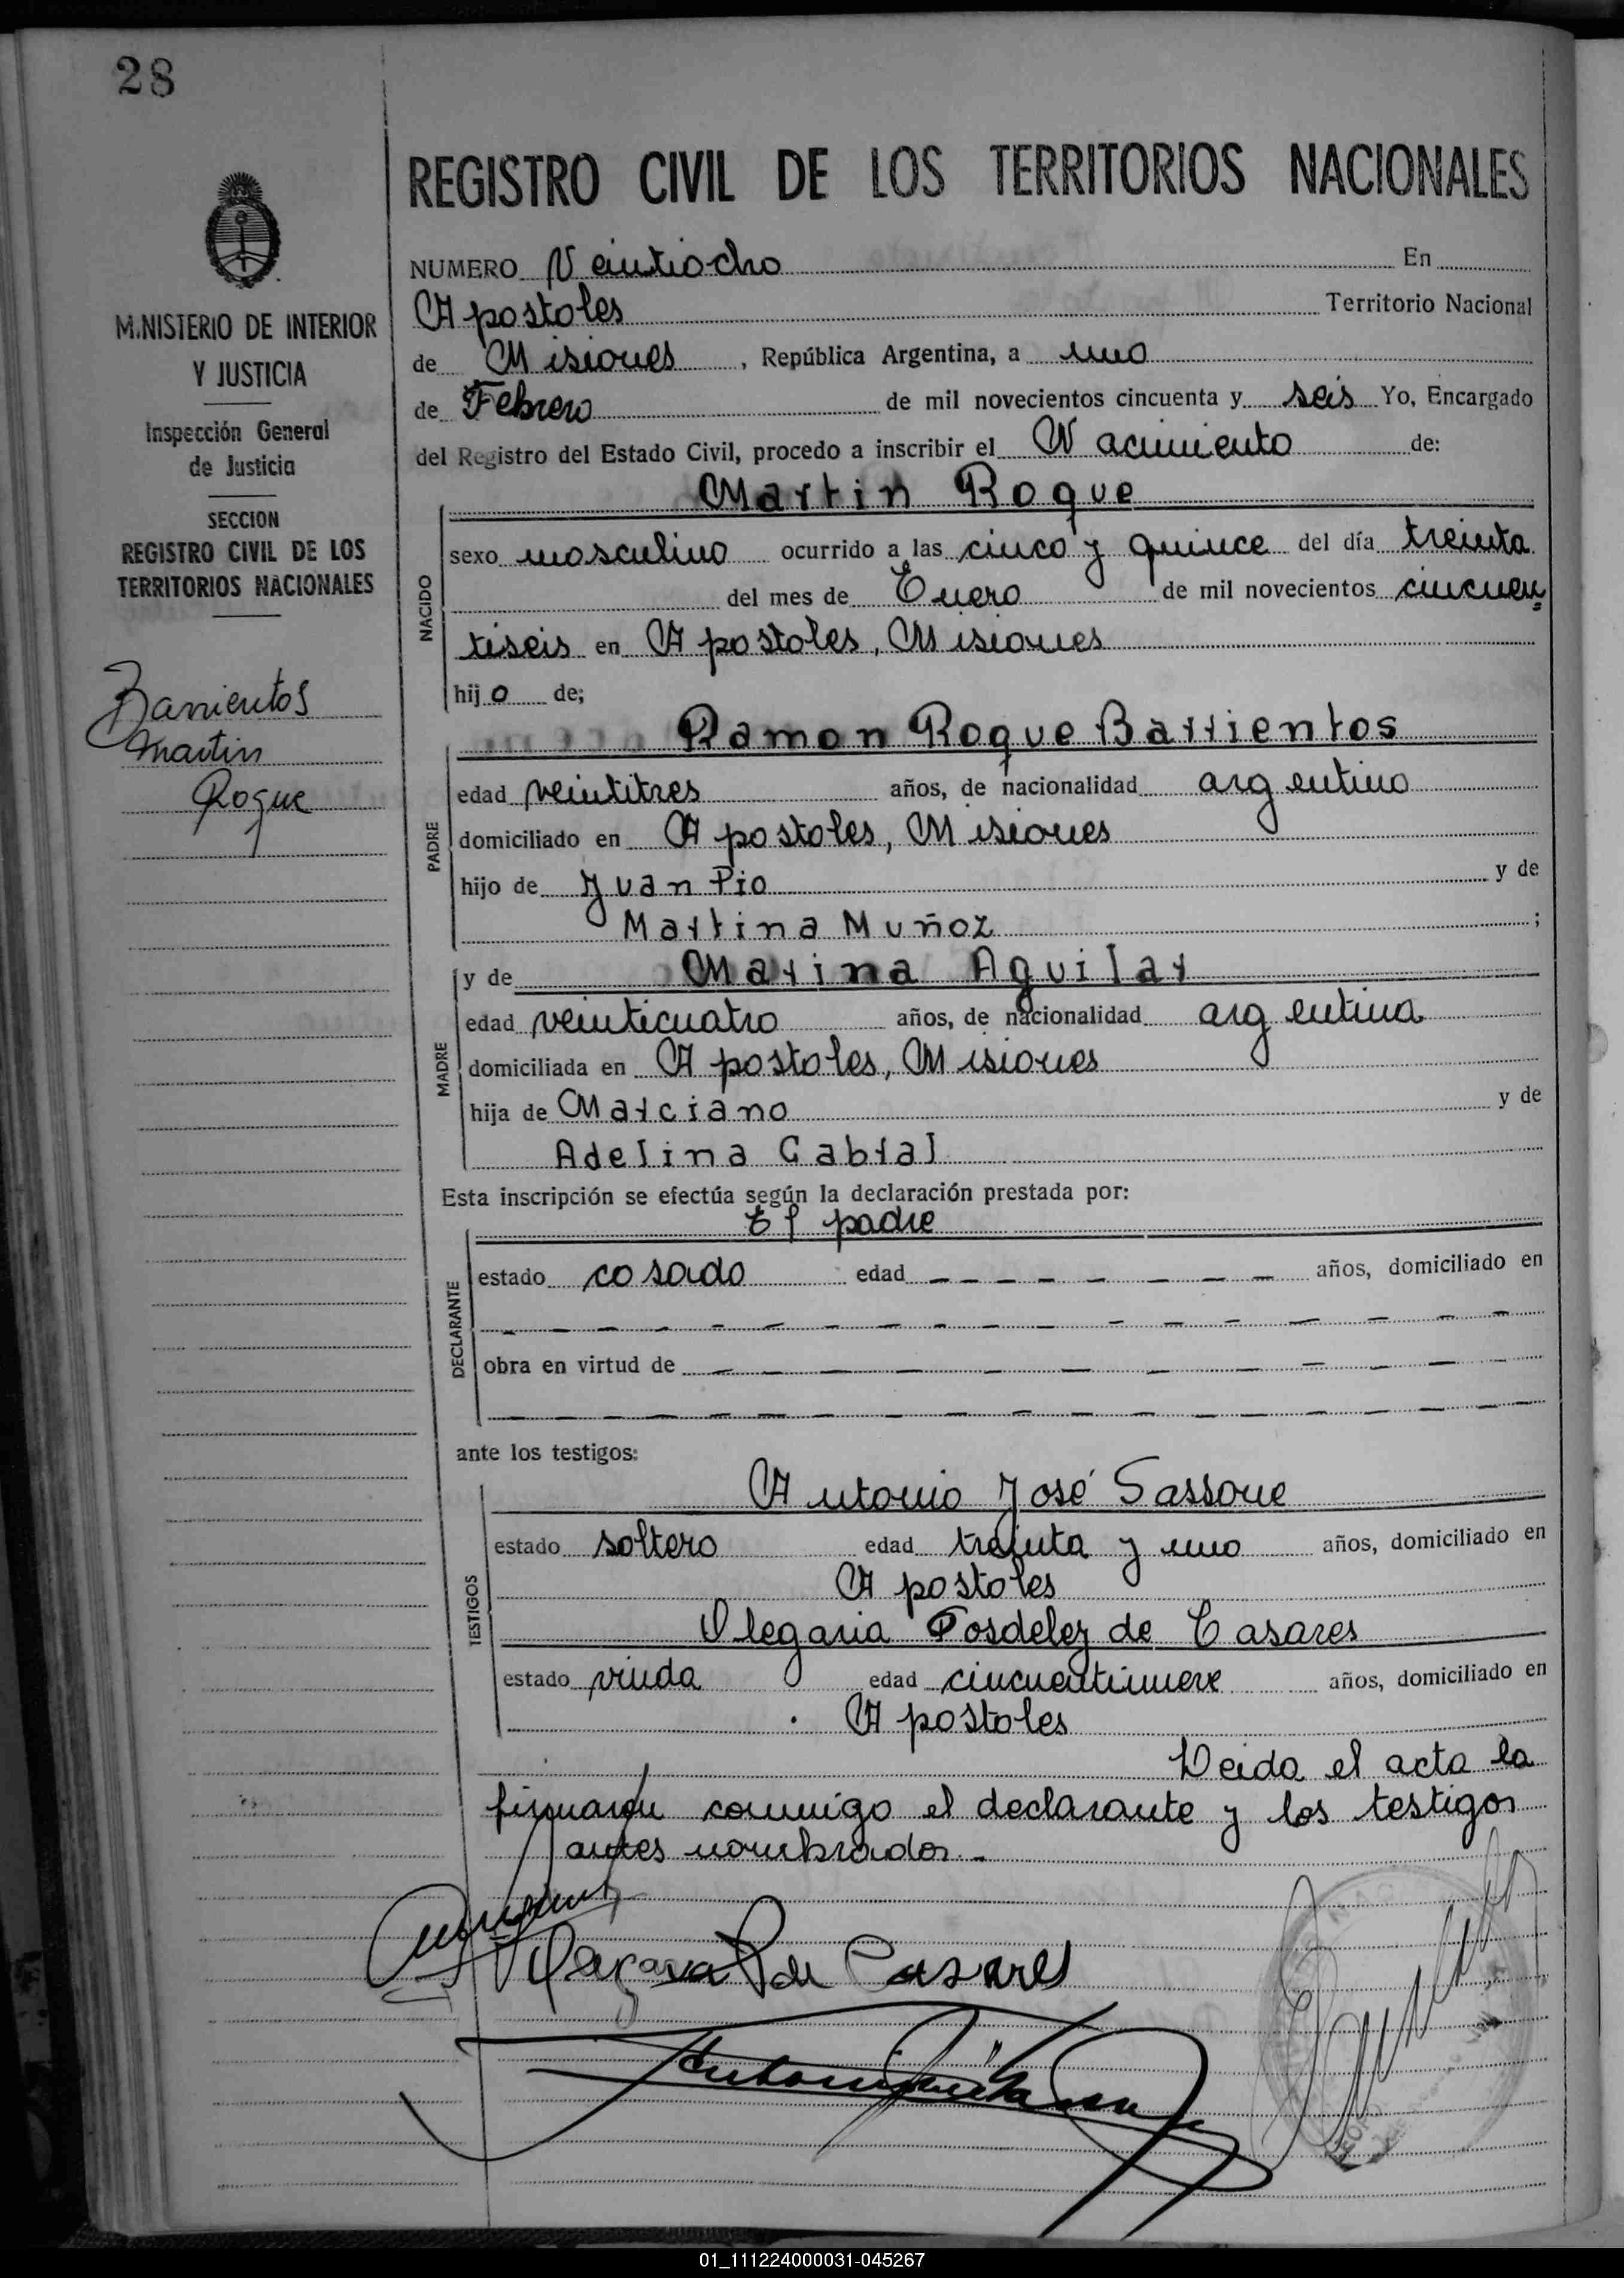 28
REGISTRO CIVIL DE LOS TERRITORIOS NACIONALES
M.NISTERIO DE INTERIOR
Y JUSTICIA
Inspección General
de Justicia
SECCION
REGISTRO CIVIL DE LOS
TERRITORIOS NACIONALES
Barrientos
Martin
Roque
NUMERO Veintiocho En
Apostoles Territorio Nacional
de Misiones, República Argentina, a uno
de Febrero de mil novecientos cincuenta y seis Yo, Encargado
del Registro del Estado Civil, procedo a inscribir el Nacimiento de:
Martin Roque
NACIDO
sexo masculino ocurrido a las cinco y quince del día treinta
del mes de Enero de mil novecientos cincuen
tiseis en Apostoles, Misiones
hijo de;
Ramon Roque Barrientos
PADRE
edad veintitres años, de nacionalidad argentino
domiciliado en Apostoles, Misiones
hijo de Juan Pio y de
Martina Muñoz ;
y de Marina Aguilar
MADRE
edad veinticuatro años, de nacionalidad argentina
domiciliada en Apostoles, Misiones
hija de Marciano y de
Adelina Cabral
Esta inscripción se efectúa según la declaración prestada por:
El padre
DECLARANTE
estado casado edad — — — — — — — años, domiciliado en
obra en virtud de
ante los testigos:
Antonio José Sassone
TESTIGOS
estado soltero edad treinta y uno años, domiciliado en
Apostoles
Olegaria Posdeley de Casares
estado viuda edad cincuentinueve años, domiciliado en
Apostoles
Leida el acta la
firmaron conmigo el declarante y los testigos
antes nombrados.-
de Casares
01_111224000031-045267